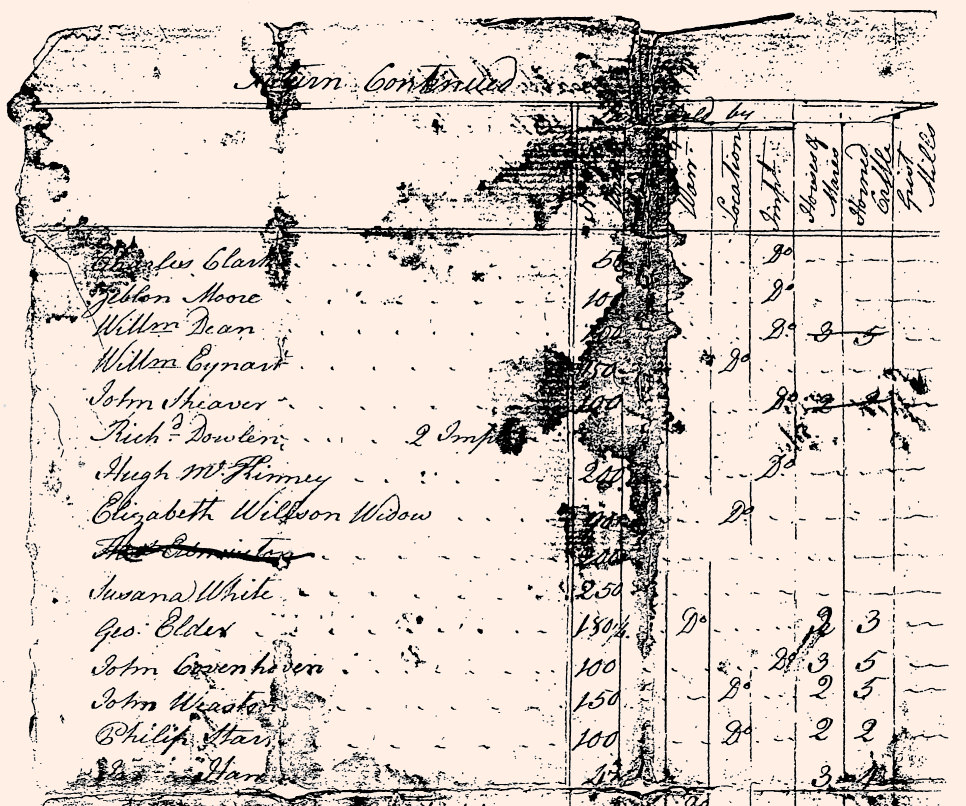 Return Continued
held by
Warr
Location
Impt
Horses & Mares
Horned Cattle
Grist Mills
Charles Clark 50 Do
Zeblon Moore 100 Do
Willm Dean 100 Do 3 5
Willm Eynart 150 Do
John Sheaver 100 Do 2 2
Richd Dowlen 2 Imp
Hugh McKinney 200 Do
Elizabeth Willson Widow Do
200
Susana White 250
Geo. Elder 180 Do 2 3
John Covenhoven 100 Do 3 5
John Weaston 150 Do 2 5
Philip Starr 100 Do 2 2
3 4